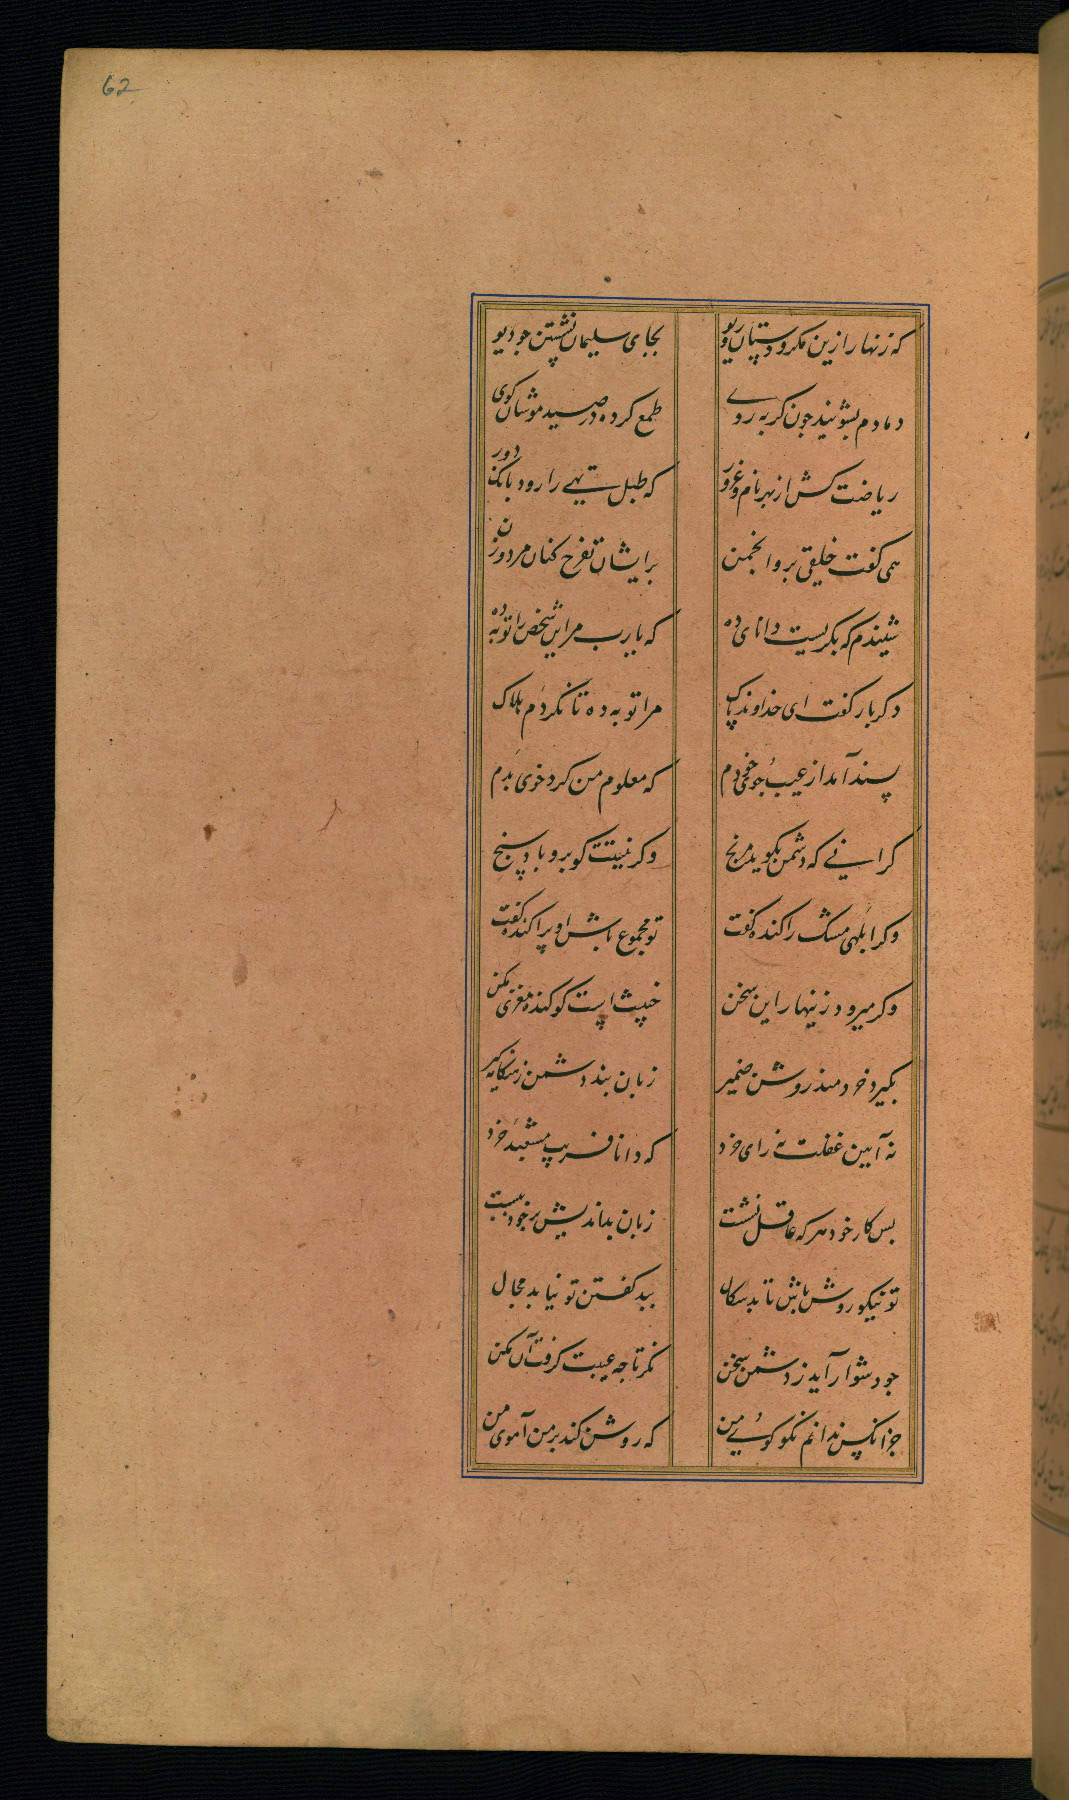 62
که زنهار ازین مکر و دستان و ریو بجای سلیمان نشستن جو دیو
دمادم بشویند جون کربه روے طمع کرده در صید موشان کوی
ریاضت کش از بهر نام و غرور که طبل تهے را رود بانک دور
همی کفت خلیقی برو انجمن برایشان تفرح کنان مرد و زن
شنیدم که بکریست دانای ده که یارب مر این شخص را توبه ده
دکر بار کفت ای خداوند پاک مرا توبه ده تا نکردم هلاک
پسند آمد از عیب جو خودم که معلوم من کرد خوی بدم
کر انے که دشمن بکوید مرنج وکر نیستت کو برو باد سنج
وکر ابلهی مسک را کنده کفت تو مجموع باش او پراکنده کفت
وکر میرود زینهار این سخن خبیث است کو کنده مغزی مکن
بکیرد خردمند روشن ضمیر زبان بند دشمن ز هنکامه کیر
نه آیین عقلست نه رای خرد که دانا فریب مشعبد خرد
بس کار خود هر که عاقل نشست زبان بداندیش بر خود ببست
تو نیکو روش باش تا بدسکال ببد کفتن تو نیابد مجال
جو دشوار آید ز دشمن سخن نکر تا جه عیبت کرفت آن مکن
جز آنکس ندانم نکو کوئے من که روشن کند بر من آموی من